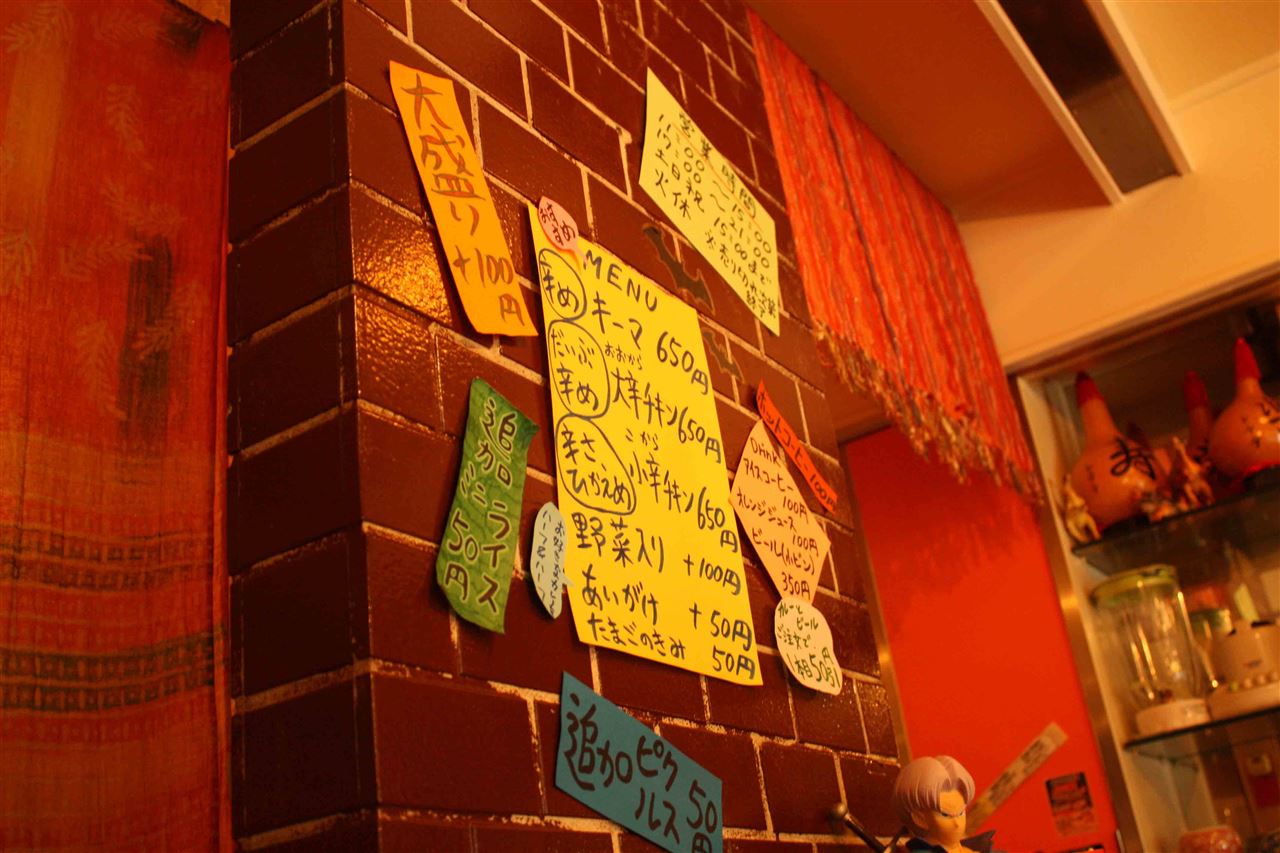 大盛り
+100円
営業時間
17:00〜21:00
土日祝
火休
おすすめ
MENU
辛め
キーマ 650円
だいぶ
辛め
おおから
大辛チキン 650円
辛さ、
ひかえめ
こから
小辛チキン 650円
野菜入り +100円
あいがけ +50円
たまごのきみ 50円
追加ミニライス
50円
ホットコーヒー100円
Drink
アイスコーヒー
100円
オレンジジュース
100円
ビール(小ビン)
350円
カレーと
ビール
ご注文で
追加ピクルス 50円